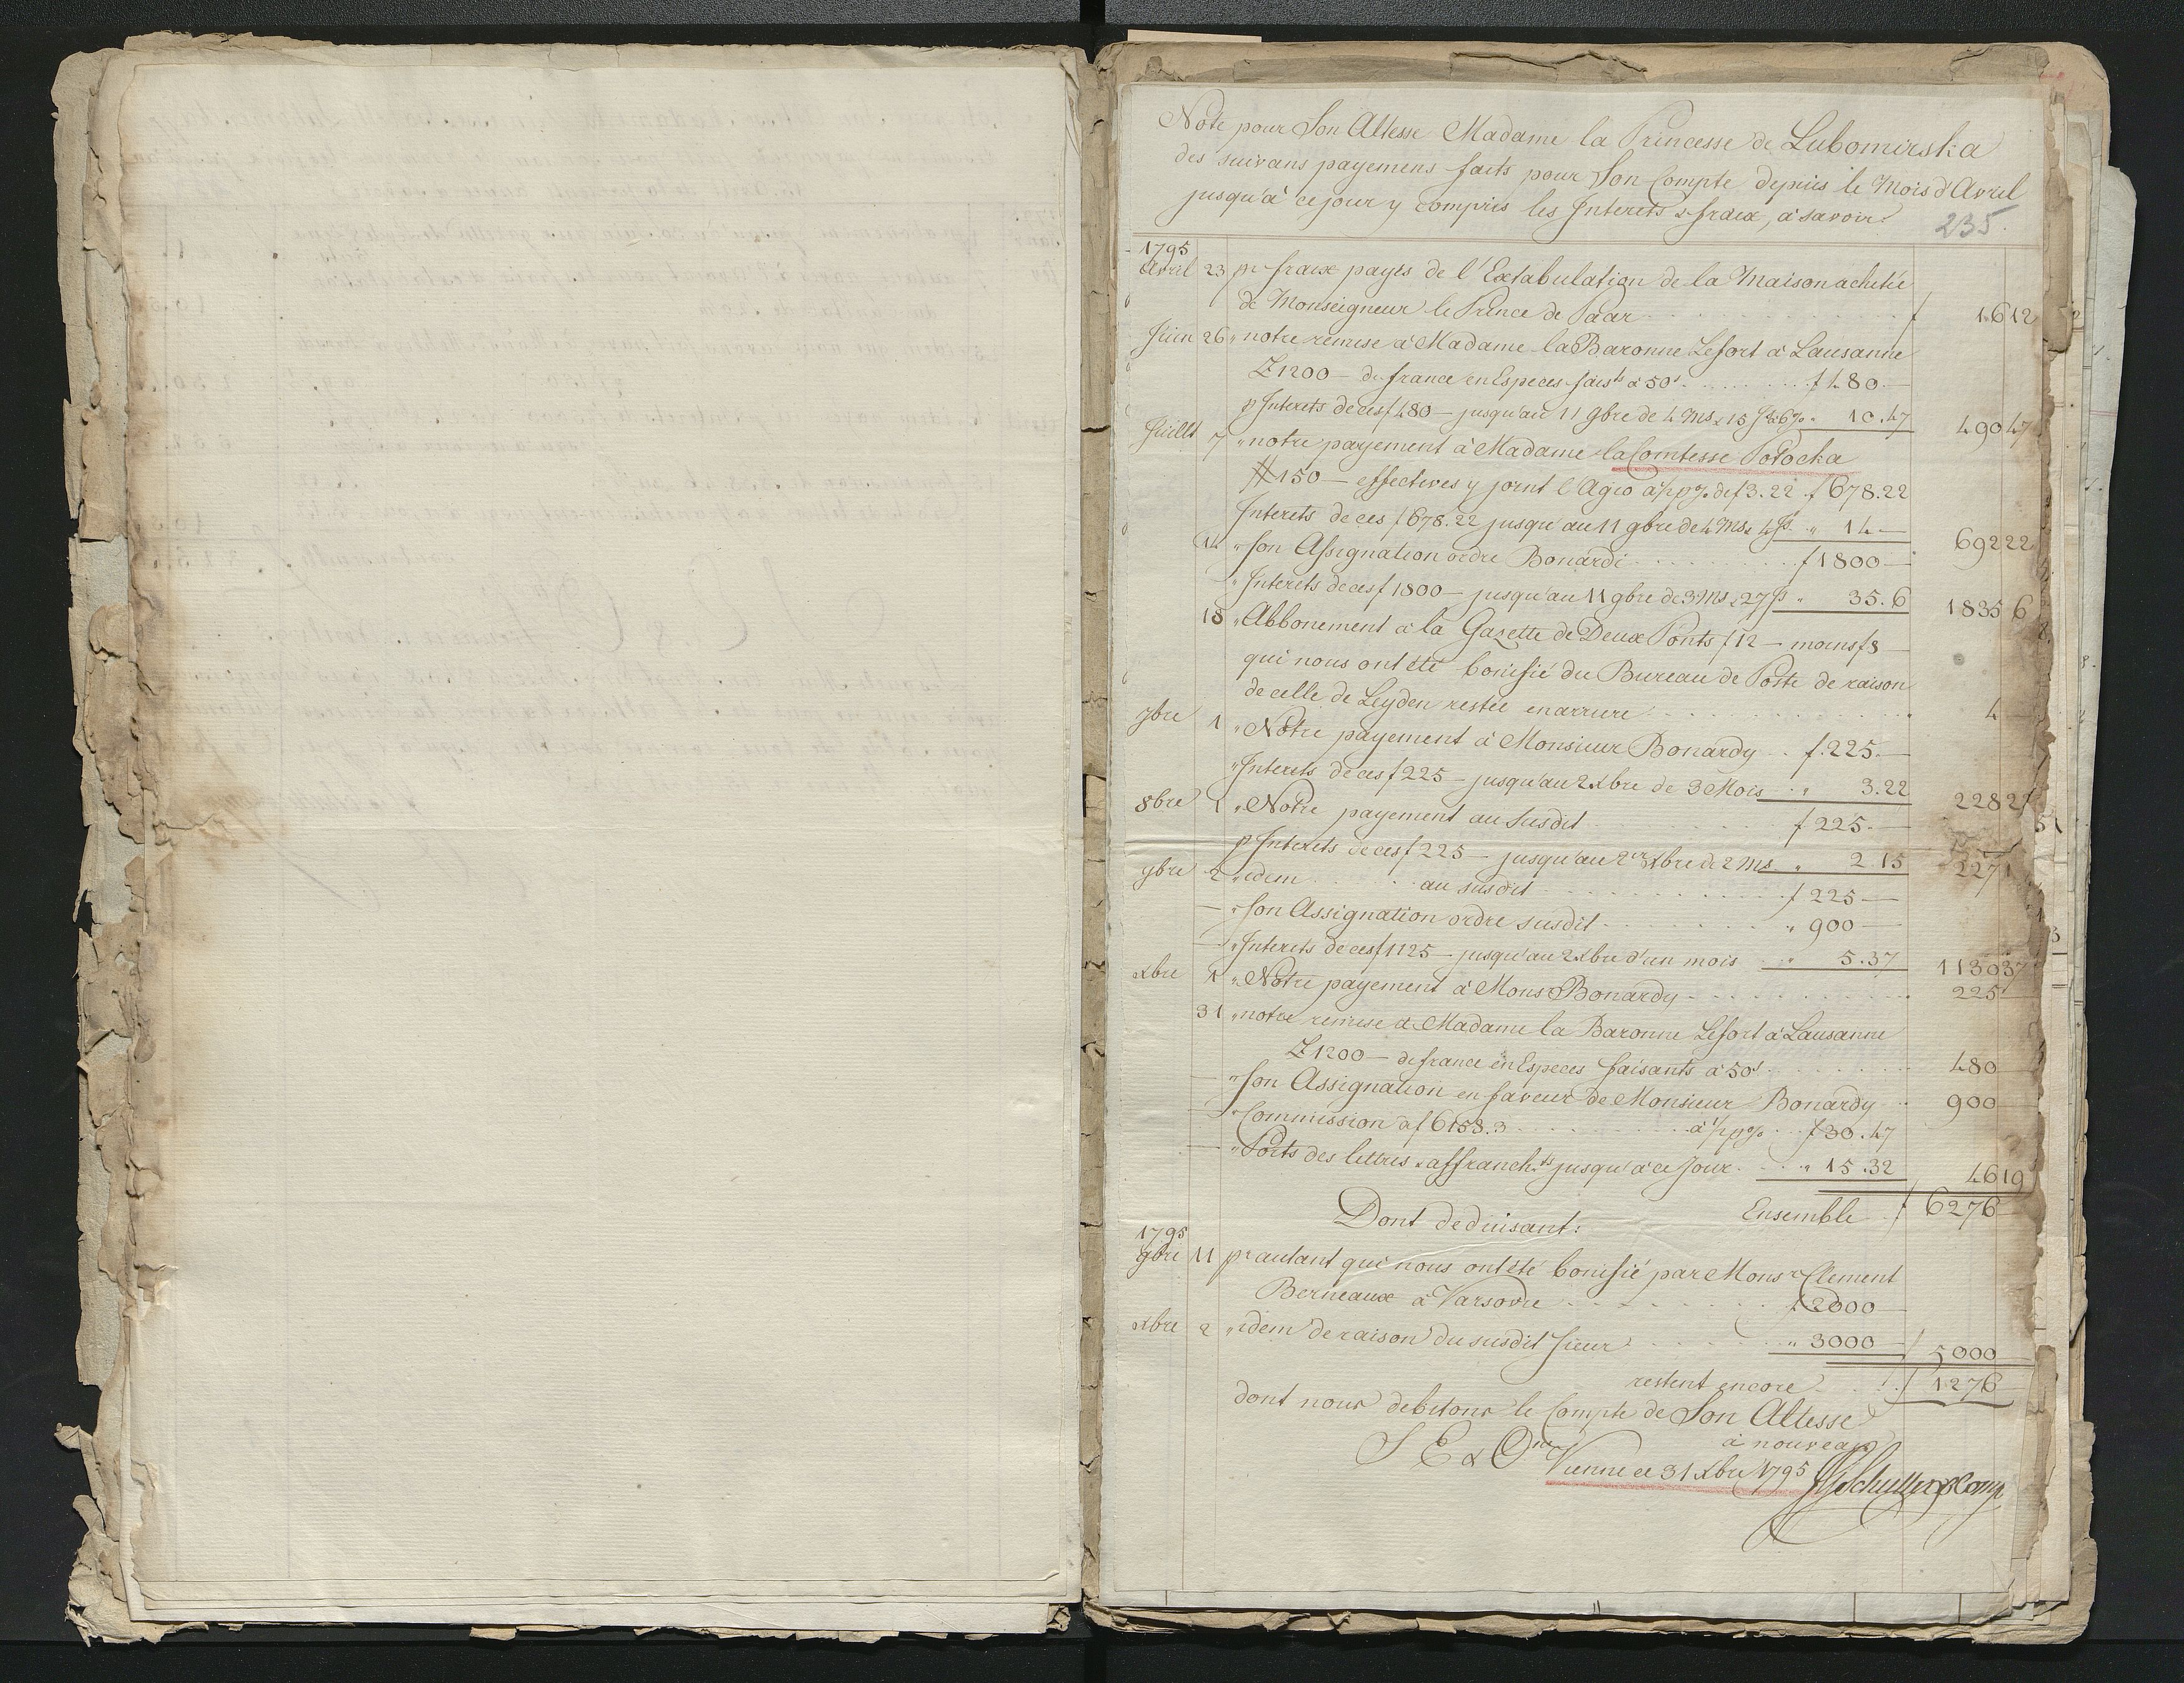 Note pour Son Altesse Madame la Princesse de Lubomirska
des suivans payemens faits pour Son Compte depuis le Mois d'Avril
jusqu'à ce jour y compris les Interets & fraix, à savoir:
235.
1795
Avril 23 pr fraix payés de l'Extabulation de la Maison achetée
de Monseigneur le Prince de Paar f 16 12
Juin 26 " notre remise à Madame la Baronne Lefort à Lausanne
1200 — de france en Especes fais.ts à 50 f 480 —
p Interets de ces f 480 — jusqu'au 11 9bre de 4 Ms & 15 Js à 6% " 10.47 490 47
Juillt 7 " notre payement à Madame la Comtesse Potocka
# 150 — effectives y joint l'Agio à 1/2 p% de f 3.22 f 678.22
Interets de ces f 678.22 jusqu'au 11 9bre de 4 Ms & 4 Js " 14 — 692 22
14 " Son Assignation ordre Bonardi f 1800 —
" Interets de ces f 1800 — jusqu'au 11 9bre de 3 Ms & 27 Js " 35.6 1835 6
18 " Abbonement à la Gazette de Deux Ponts f 12 — moins f 8 —
qui nous ont été bonifié du Bureau de Poste de raison
de celle de Leyden restée en arriere 4 —
7bre 1 " Notre payement à Monsieur Bonardy f. 225. —
" Interets de ces f 225 — jusqu'au 2 Xbre de 3 Mois " 3.22 228 22
8bre 1 " Notre payement au Susdit f 225. —
p Interets de ces f 225 — jusqu'au 2 Xbre de 2 Ms " 2 15 227
9bre 2 " idem au susdit f 225 —
— " Son Assignation ordre susdit " 900 —
— " Interets de ces f 1125 — jusqu'au 2 Xbre d'un mois " 5.37 1130 37
Xbre 1 " Notre payement à Monsr Bonardy 225 —
31 " notre remise à Madame la Baronne Lefort à Lausanne
1200 — de france en Especes faisants à 50 480 —
— " Son Assignation en faveur de Monsieur Bonardy 900 —
" Commission de f 6158.3 à 1/2 p% f 30.47
— " Ports des lettres & affranch.ts jusqu'à ce Jour " 15.32 46 19
Ensemble f 6276 —
Dont deduisant:
1795
9bre 11 pr autant qui nous ont été bonifié par Monsr Clement
Berneaux à Varsovie f 2000 —
Xbre 2 " idem de raison du susdit Sieur " 3000 — f 5000
restent encore f 1276 —
dont nous debitons le Compte de Son Altesse
à nouveau
S E & Onn Vienne ce 31 Xbre 1795
Schuller & Comp